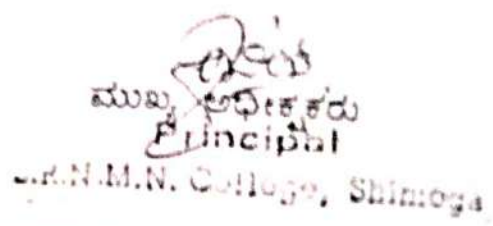 ಮುಖ್ಯ ಅಧೀಕ್ಷಕರು
Principal
N.M.N. College, Shimoga